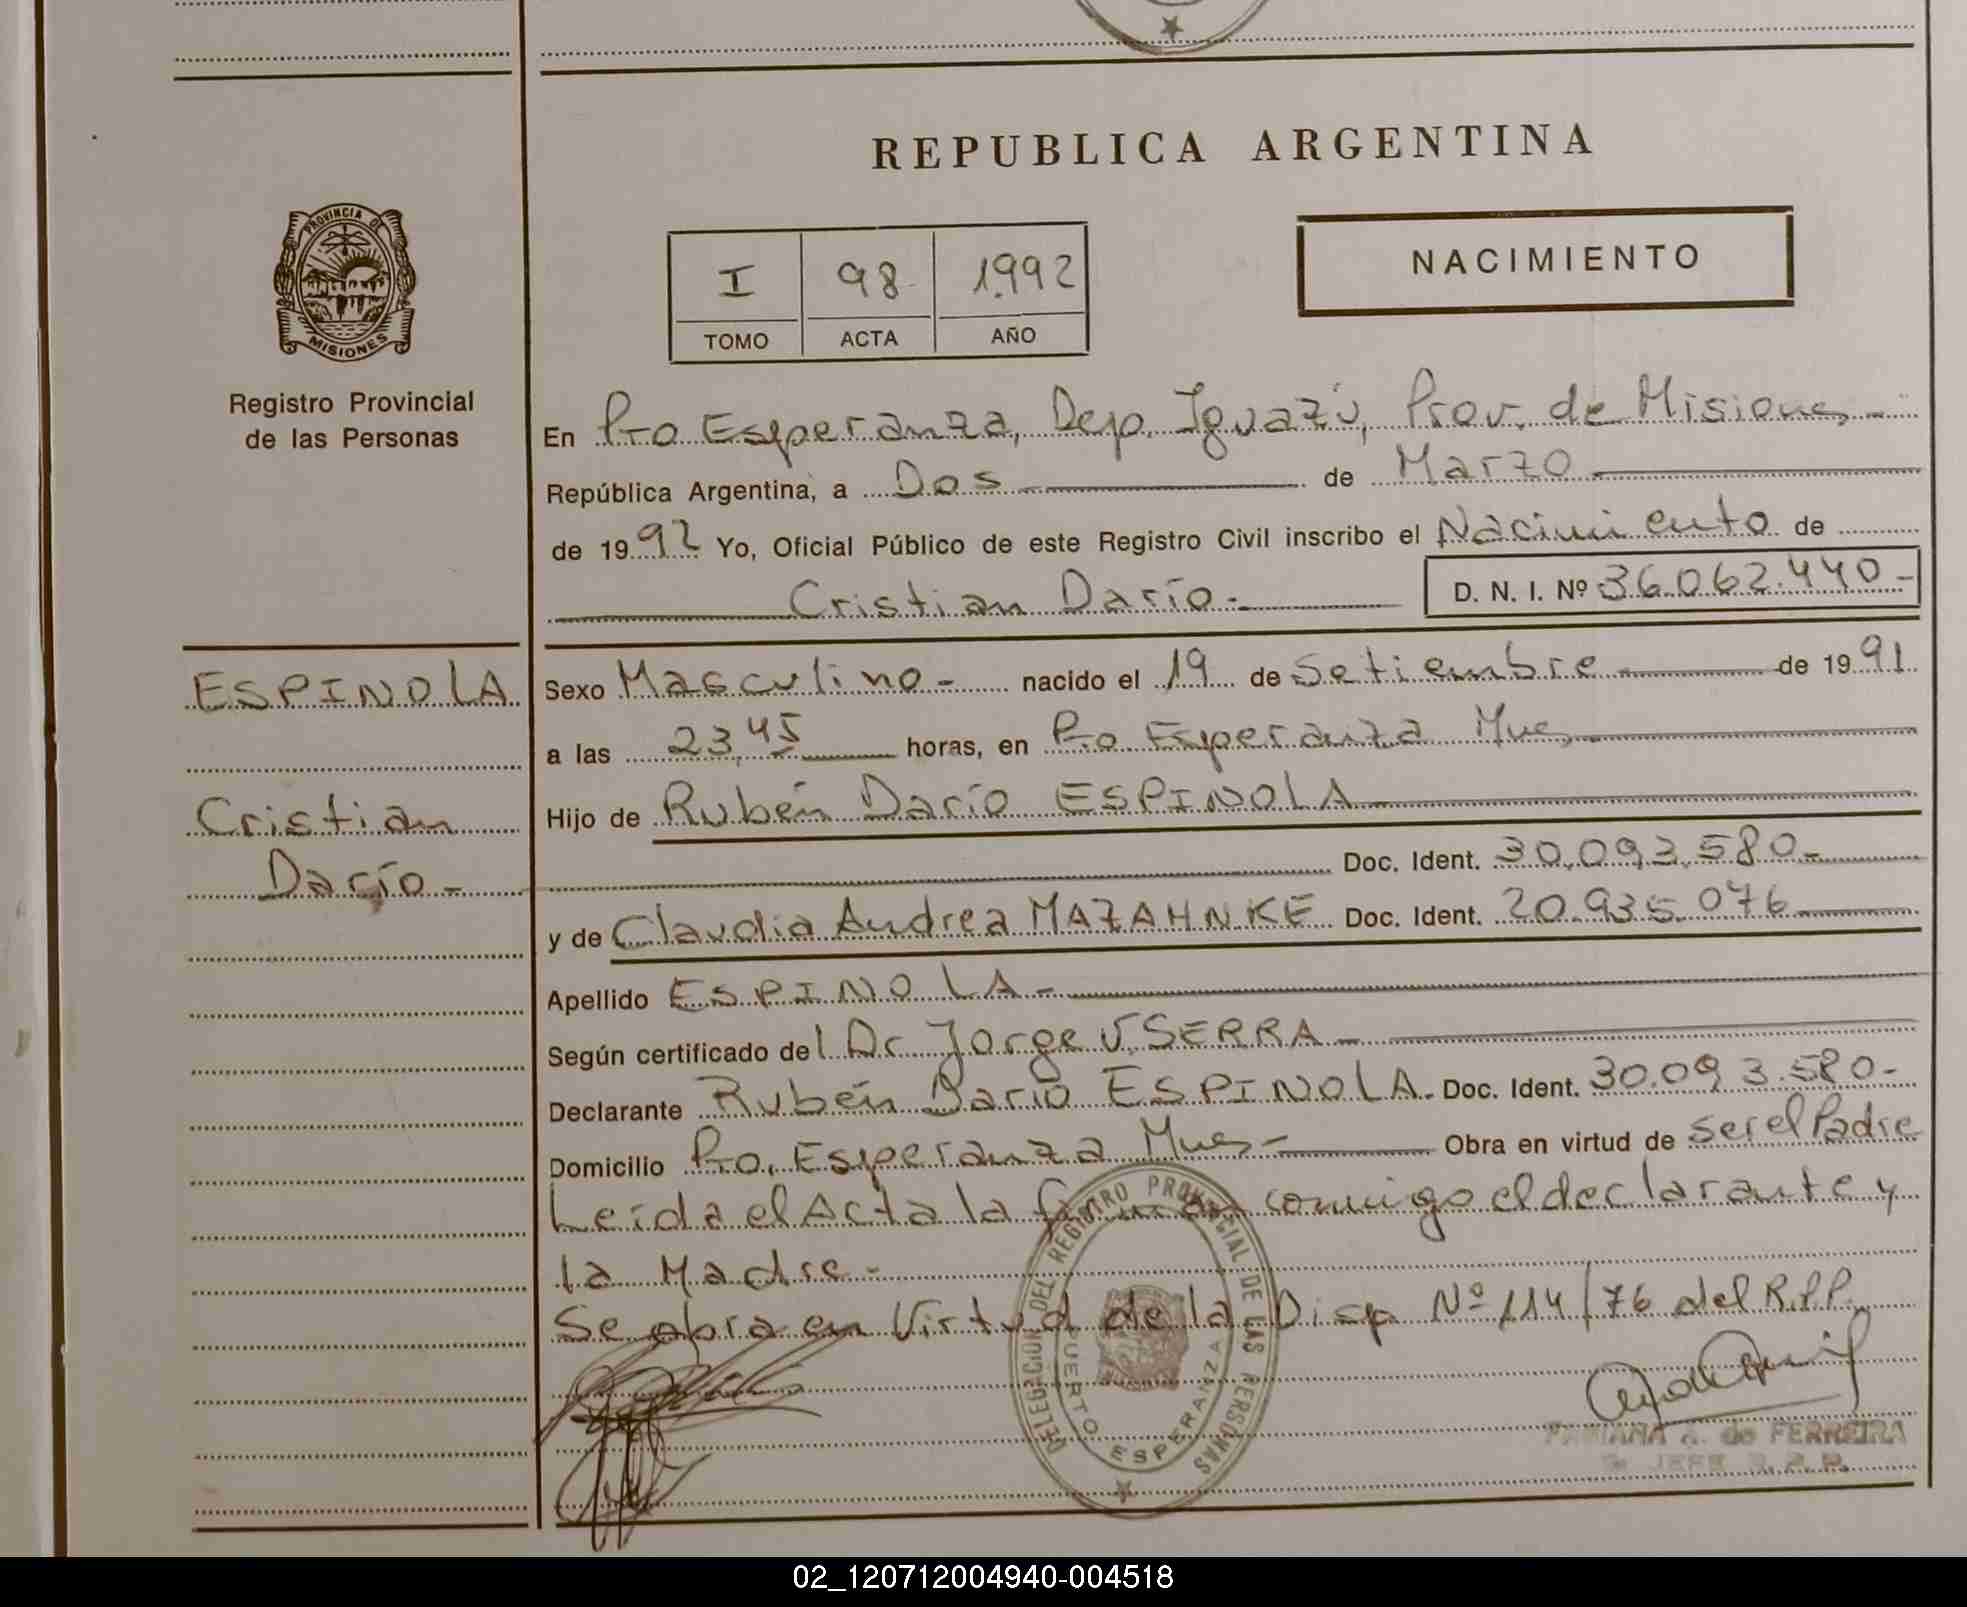 REPUBLICA ARGENTINA
PROVINCIA DE
MISIONES
Registro Provincial
de las Personas
I 98 1.992
TOMO ACTA AÑO
NACIMIENTO
En Pto Esperanza, Dep. Iguazú, Prov. de Misiones -
República Argentina, a Dos de Marzo
de 1992 Yo, Oficial Público de este Registro Civil inscribo el Nacimiento de
Cristian Darío.- D. N. I. Nº 36.062.440-
ESPINOLA
Cristian
Darío -
Sexo Masculino - nacido el 19 de Setiembre de 1991
a las 23,45 horas, en Pto Esperanza Mnes
Hijo de Rubén Darío ESPINOLA
Doc. Ident. 30.093.580-
y de Claudia Andrea MAZAHNKE Doc. Ident. 20.935.076
Apellido ESPINOLA -
Según certificado del Dr Jorge V. SERRA -
Declarante Rubén Darío ESPINOLA. Doc. Ident. 30.093.580-
Domicilio Pto. Esperanza Mnes - Obra en virtud de ser el Padre
Leída el Acta la firman comigo el declarante y
la Madre -
Se obra en Virtud de la Disp Nº 114/76 del R.P.P.
DELEGACION DEL REGISTRO PROVINCIAL DE LAS PERSONAS
PUERTO ESPERANZA
de FERREIRA
JEFE R. P. P.
02_120712004940-004518